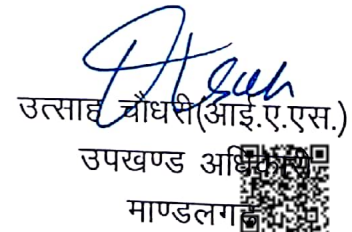 उत्साह चौधरी(आई.ए.एस.)
उपखण्ड अधिकारी
माण्डलगढ़